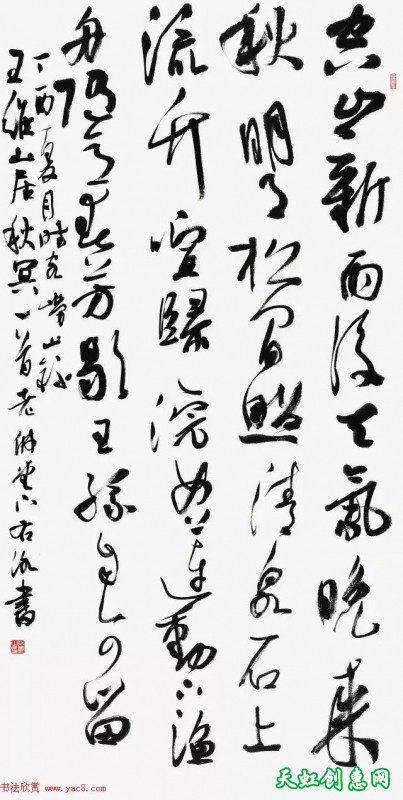 空山新雨後天氣晚來
秋明月松間照清泉石上
流竹喧歸浣女蓮動下漁
舟隨意春芳歇王孫自可留
丁酉夏月時客嶗山錄
王維山居秋冥一首老右書
书法欣赏 www.yac8.com
天虹创惠网